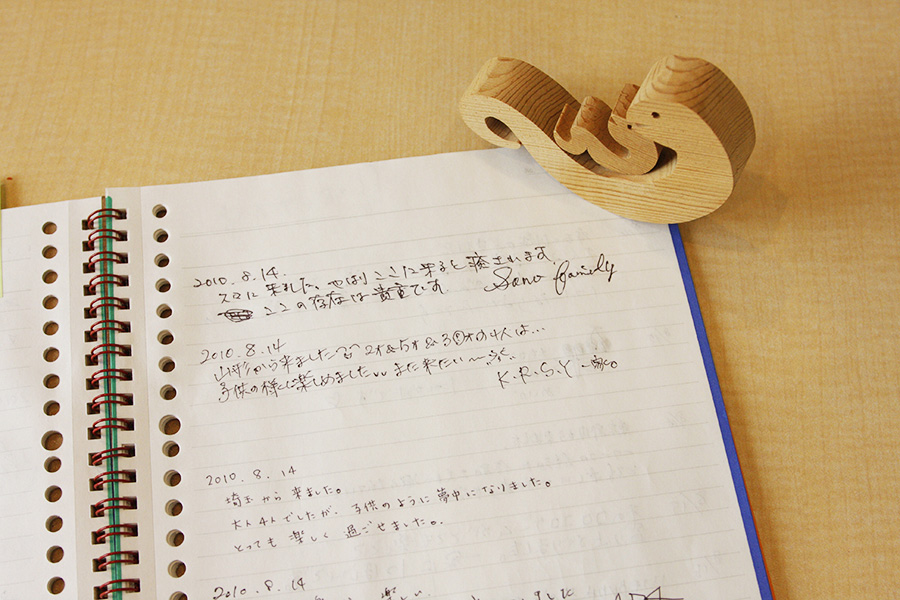 2010.8.14.
久々に来ました。やはりここに来ると癒されます。
ここの存在は貴重です Sano family
2010.8.14
山形から来ました 2才&5才&3才の4人は…
子供の様に楽しめました また来たい〜
K.R.S.Y 一家。
2010.8.14
埼玉から来ました。
大人4人でしたが、子供のように夢中になりました。
とっても楽しく過ごせました。
2010.8.14
楽しい